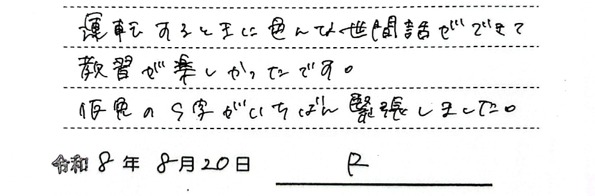 運転するときに色んな世間話ができて
教習が楽しかったです。
仮免のS字がいちばん緊張しました。
令和8年8月20日 R